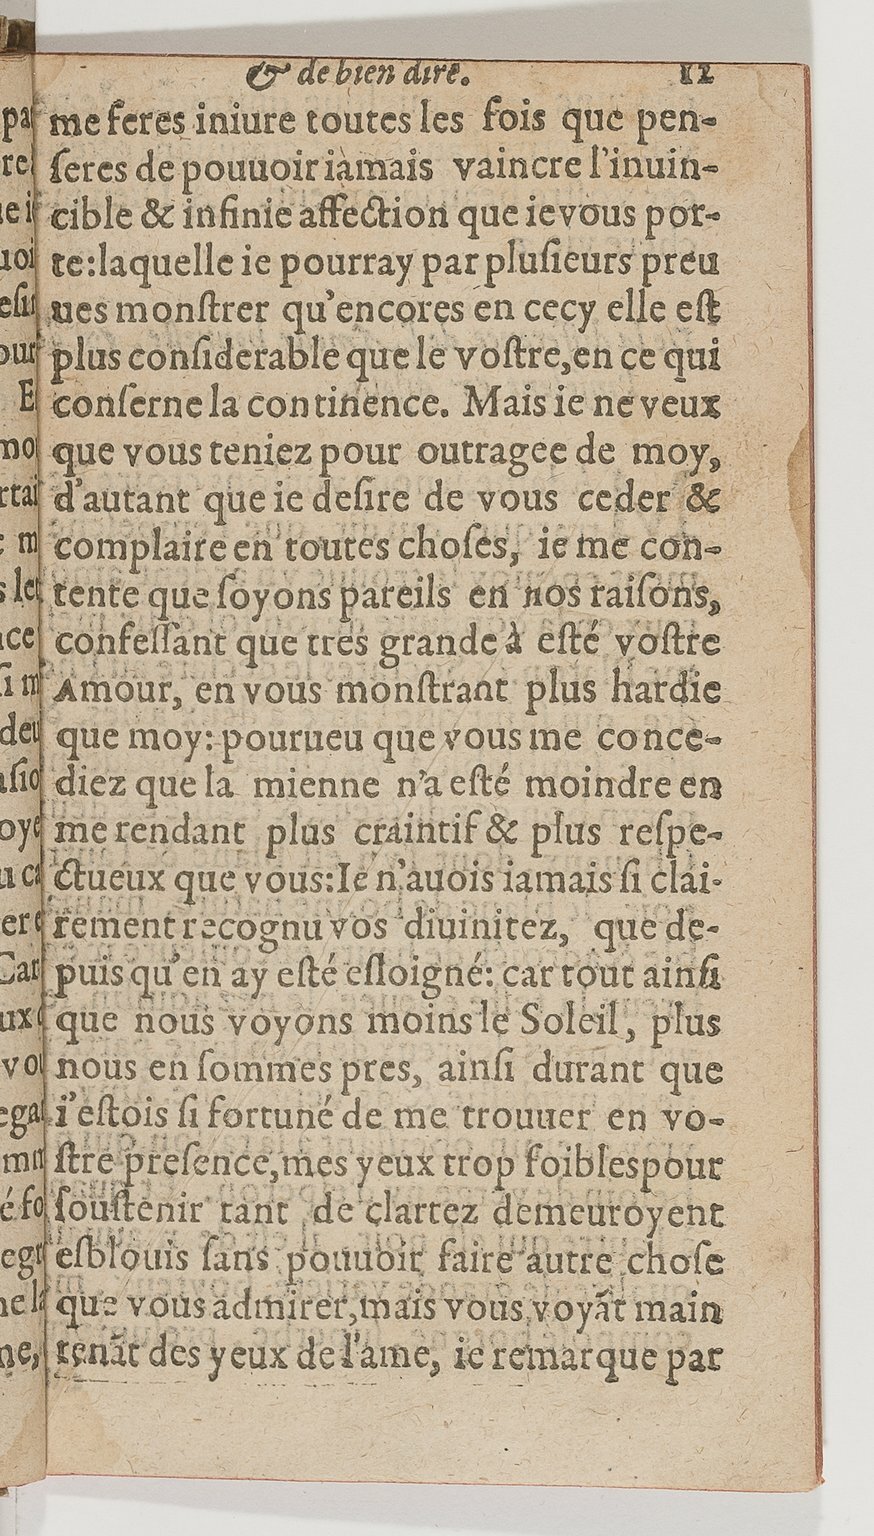 & de bien dire. 12
me feres iniure toutes les fois que pen-
ſeres de pouuoir iamais vaincre l'inuin-
cible & infinie affection que ie vous por-
te: laquelle ie pourray par pluſieurs preu
ues monſtrer qu'encores en cecy elle eſt
plus conſiderable que le voſtre, en ce qui
conſerne la continence. Mais ie ne veux
que vous teniez pour outragee de moy,
d'autant que ie deſire de vous ceder &
complaire en toutes choſes, ie me con-
tente que ſoyons pareils en nos raiſons,
confeſſant que tres grande à eſté voſtre
Amour, en vous monſtrant plus hardie
que moy: pourueu que vous me conce-
diez que la mienne n'a eſté moindre en
me rendant plus craintif & plus reſpe-
ctueux que vous: Ie n'auois iamais ſi clai-
rement recognu vos diuinitez, que de-
puis qu'en ay eſté eſloigné: car tout ainſi
que nous voyons moins le Soleil, plus
nous en ſommes pres, ainſi durant que
i'eſtois ſi fortuné de me trouuer en vo-
ſtre preſence, mes yeux trop foibles pour
ſouſtenir tant de clartez demeuroyent
eſblouis ſans pouuoir faire autre choſe
que vous admirer, mais vous voyãt main
tenãt des yeux de l'ame, ie remarque par